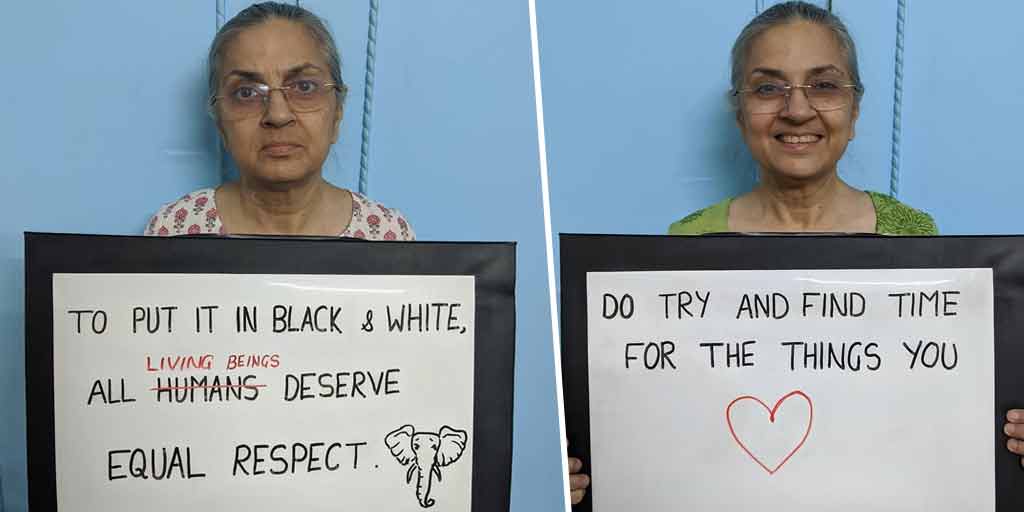 TO PUT IT IN BLACK & WHITE,
LIVING BEINGS
ALL HUMANS DESERVE
EQUAL RESPECT.
DO TRY AND FIND TIME
FOR THE THINGS YOU